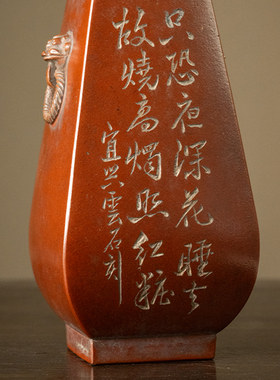 只恐夜深花睡去
故燒高燭照紅粧
宜興雲石刻